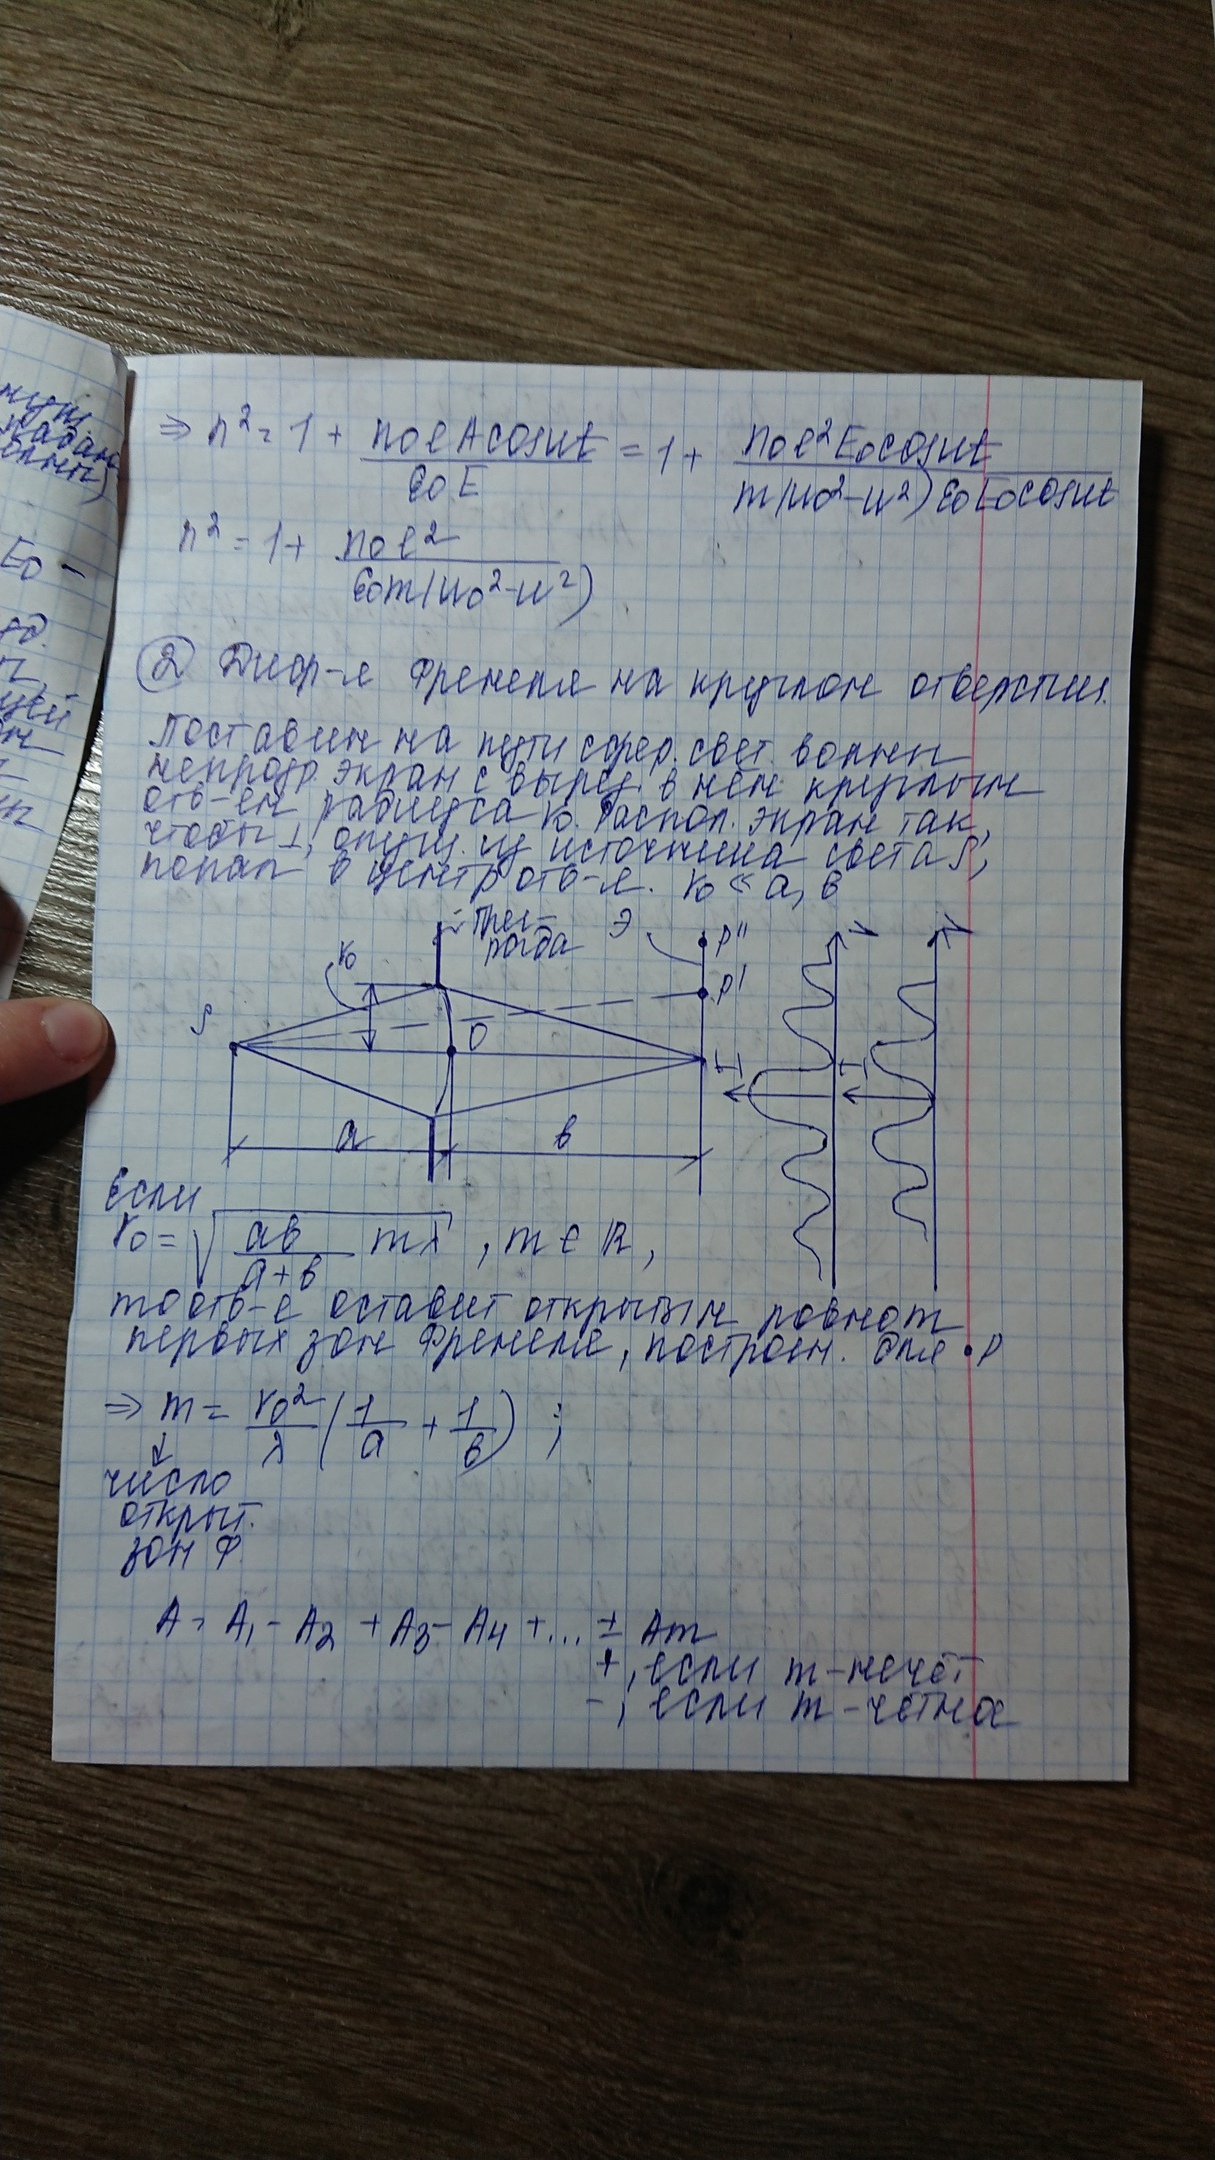 ⇒ n² = 1 + n₀eAcosωt / ε₀E = 1 + n₀e²E₀cosωt / m(ω₀²-ω²)ε₀E₀cosωt
n² = 1 + n₀e² / ε₀m(ω₀²-ω²)
② Дифр-я Френеля на круглом отверстии.
Поставим на пути сфер. свет. волны
непрозр. экран с вырез. в нём круглым
отв-ем радиуса r₀. Распол. экран так,
чтобы ⊥, опущ. из источника света S,
попал в центр отв-я. r₀ ≪ a, b
Прег-
рада
Э
P''
r₀
P'
S
O
I
I
r
r
a
b
Если
r₀ = √(ab / a+b mλ), m ∈ R,
то отв-е оставит открытым ровно m
первых зон Френеля, построен. для •P
⇒ m = r₀² / λ (1/a + 1/b) ;
↓
число
открыт.
зон Ф.
A = A₁ - A₂ + A₃ - A₄ + ... ± Am
+, если m - нечёт
-, если m - чётное
E₀ -